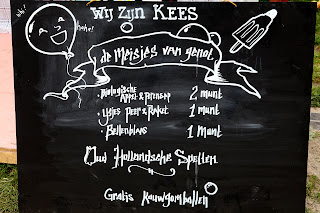 hihi!
hehe!
Wij Zijn KEES
de Meisjes van genot
• Biologische
Appel & Perensap 2 munt
• IJsjes Peer & Raket 1 munt
• Bellenblaas 1 Munt
Oud Hollandsche Spellen
Gratis Kauwgomballen